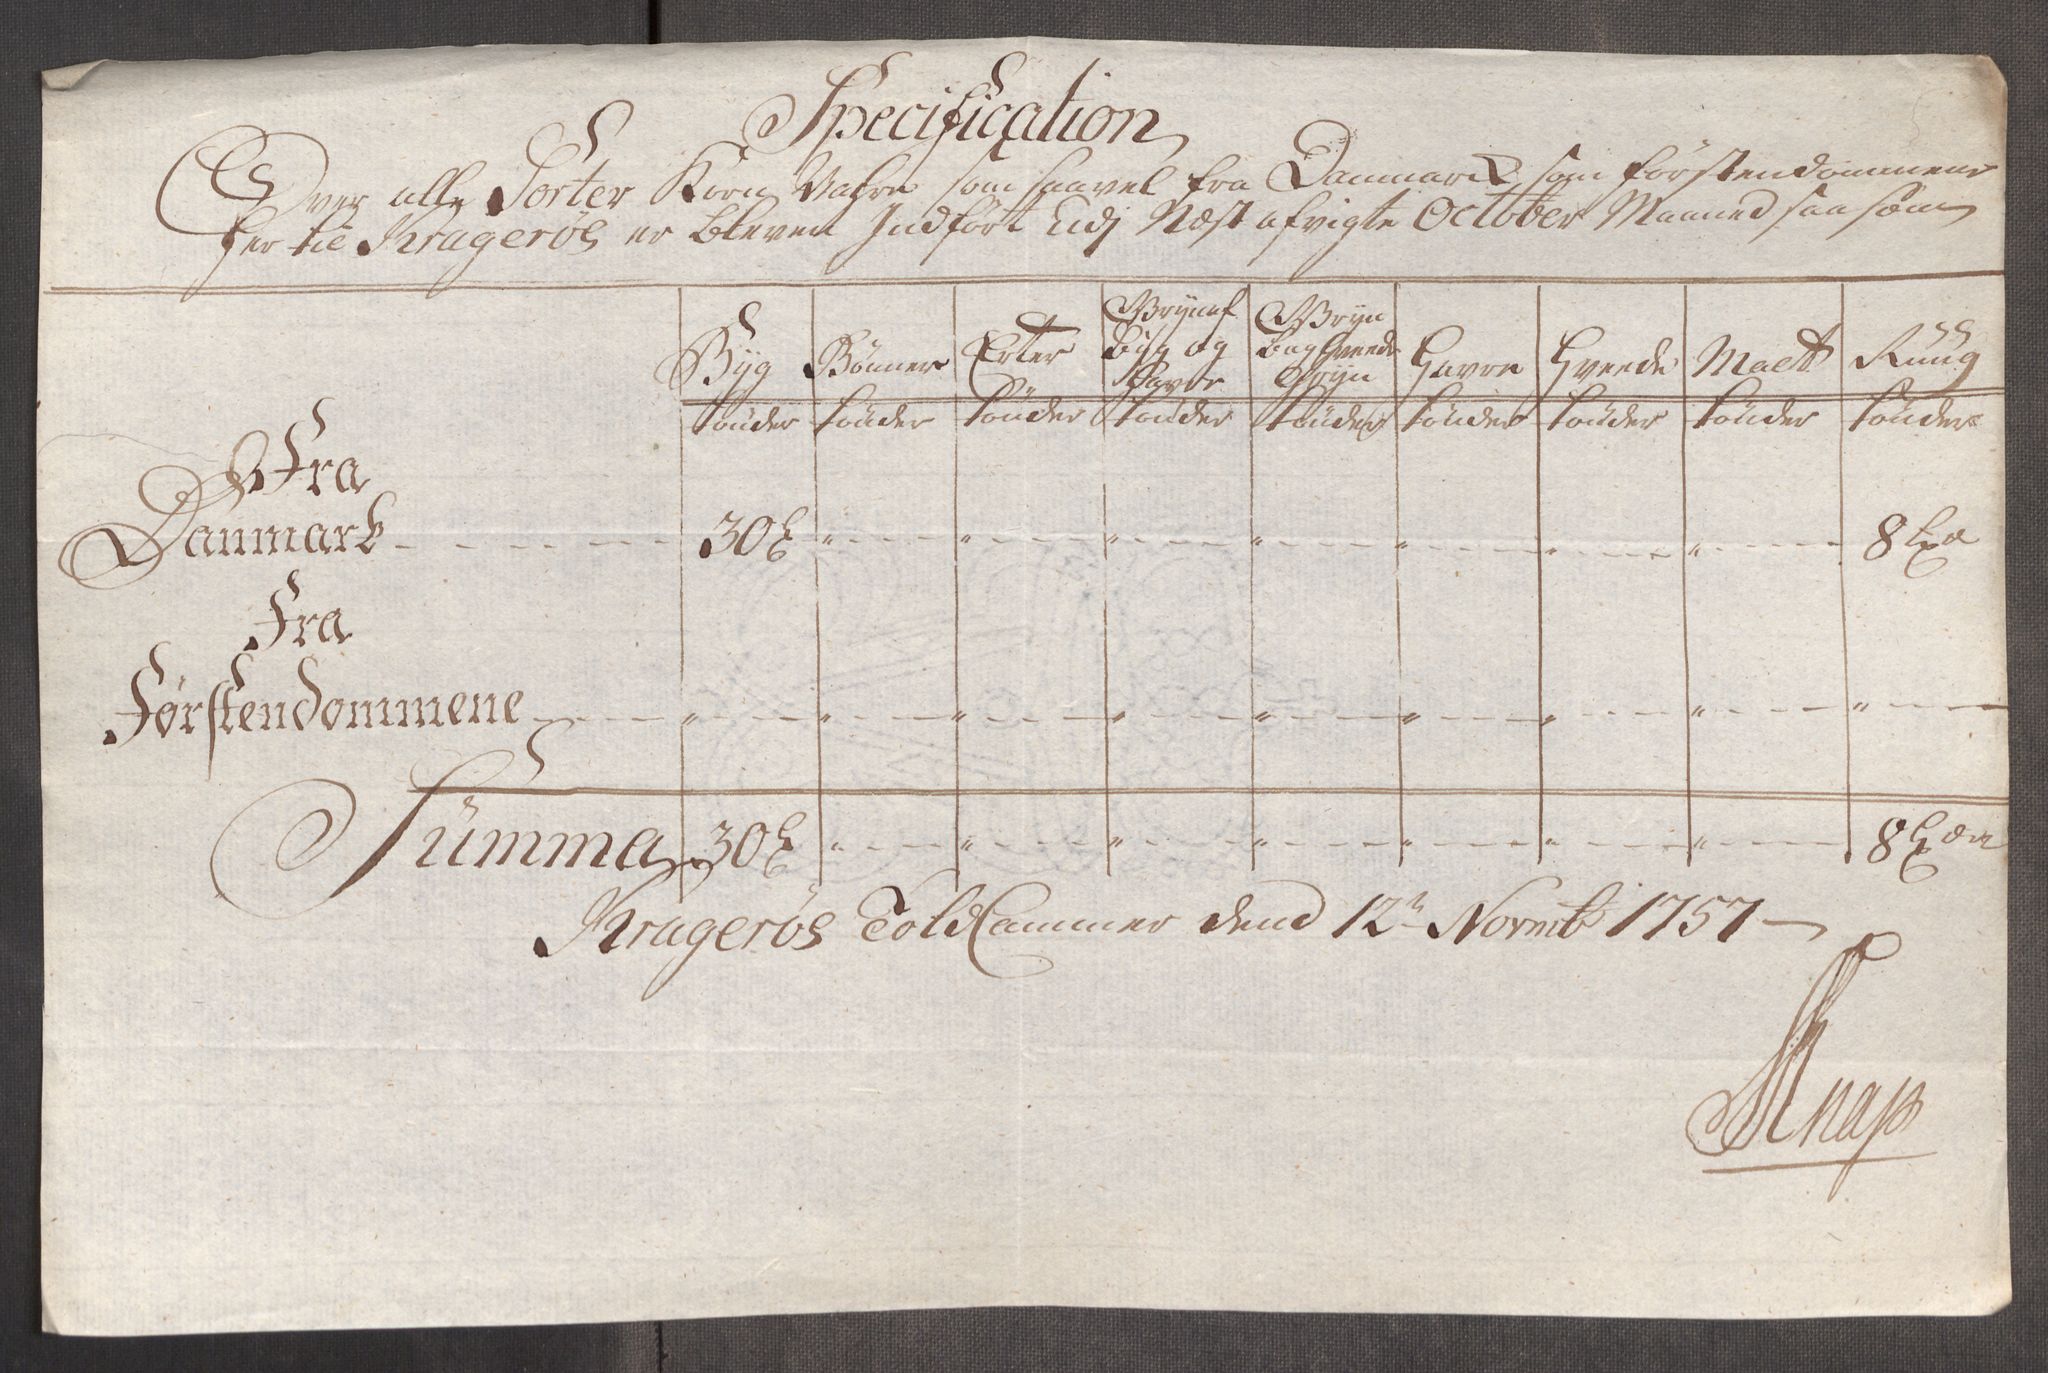 Specification
Over alle Sorter Korn Vahre som saavel fra Danmarck som Förstendommene
her til Krageröe er bleven Indfört udj Næst afvigte October Maaned saa som
Byg Bønner Erter Gryn af Byg og Havre Gryn Boghvede Gryn Havre Hvede Malt Ruug
tönder tönder tönder tönder tönder tönder tönder tönder tönder
Fra
Danmark 30 8
Fra
Førstendommene
Summa 30 8
Krageröe Told Cammer dend 12te Novemb 1757
Knap